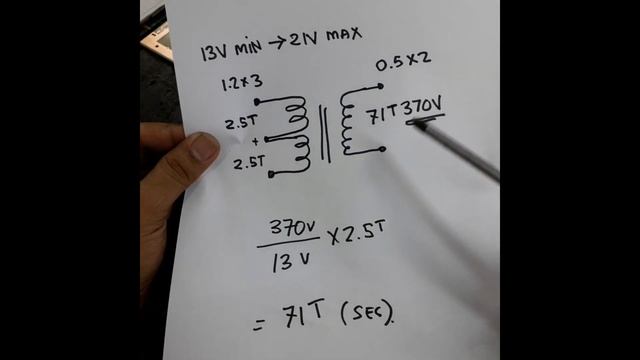 13V MIN → 21V MAX
1.2 x 3
0.5 x 2
2.5T
71T 370V
+
2.5T
370V
13 V
x 2.5T
= 71T (SEC).